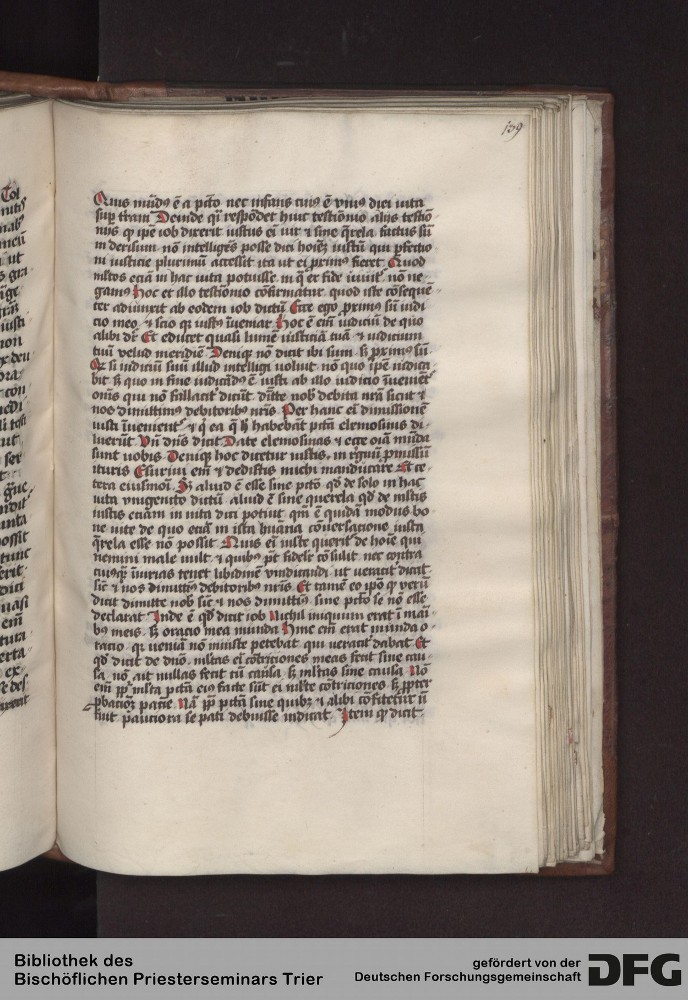 139
Quis mūdꝰ ē a pctō nec infans cuiꝰ ē vniꝰ diei uita
sup̄ terrā Deinde qr̄ respōdet huic testīonio aliis testīo
niis q̄ ipē iob dixerit iustus ei uir & sine q̄rela factus sū
in derisum nō intelligēs posse dici hoīeȝ iustū qui ꝑfectio
ni iusticie plurimū accessit ita ut ei primꝰ fieret Quod
mltos eciā in hac uita potuisse in q̄ er fide iuuīt nō ne
gamꝰ Hoc et illo testīonio cōfirmatur quod iste cōsequē
ter adiunxit ab eodem iob dictū Ecce ego ꝓximꝰ sū iudi
cio meo & scio qꝛ iustꝰ īueniar Hoc ē eīm iudiciū de quo
alibi dr̄ Et educet quasi lumē iusticiā tuā & iudicium
tuū velud meridiē Deniqꝫ nō dicit ibi sum sꝫ ꝓximꝰ sū
Qꝛ si iudiciū suū illud intelligi voluit nō quo ipē iudica
bit sꝫ quo in fine iudicādꝰ ē iusti ab illo iudicio īueniēt
oīnis qui nō fallacit dicūt dītte nob̄ debita nr̄a sicut &
nos dimittimꝰ debitoribꝰ nr̄is Per hanc eī dimissionē
iusti īuenient & q̄ ea q̄ hꝰ habebāt pctā elemosinis di
luerūt Vn̄ dn̄s dicit Date elemosinas & ecce oīa mūda
sunt vobis Deniqꝫ hoc dicetur iustis in rgnū ꝓmissū
ituris Esuriui em̄ & dedistis michi manducare Et ce
tera eiusmoī Sꝫ aliud ē esse sine pctō qd̄ de solo in hac
uita vnigenito dictū aliud ē sine querela qd̄ de mltis
iustis eciam in uita dici potuit qm̄ ē quidā modus bo
ne uite de quo eciā in ista hūana cōuersacione iusta
q̄rela esse nō possit Quis eī iuste querit de hoīe qui
nemini male uult & quibꝰ pt̄ fidelr̄ cōsulit nec contra
cuiusqꝫ iniurias tenet libidinē vindicandi ut veracit dicat
sic̄ & nos dimittimꝰ debitoribꝰ nr̄is Et tamē eo ip̄o qꝛ verū
dicit dimitte nob̄ sic̄ & nos dimittimꝰ sine pctō se nō esse
declarat Inde ē qd̄ dicit iob Nichil iniquum erat ī mani
bꝰ meis sꝫ oracio mea munda Hinc eīm erat munda o
racio qꝛ ueniā nō iniuste petebat qui veracit dabat Et
qd̄ dicit de dn̄o mltas eī cōtriciones meas fecit sine cau
sa nō ait nullas fecit cū causa sꝫ mltas sine causa Nō
eīm ꝓp̄ mlta pctā eiꝰ facte sūt ei mlte cōtriciones sꝫ ꝓpter
ꝓbacioneȝ pacie Nā ꝓp̄ pctā sine quibꝫ & alibi cōfitetur nō
fuit pauciora se pati debuisse iudicat Item qꝛ dicit
Bibliothek des
Bischöflichen Priesterseminars Trier
gefördert von der
Deutschen Forschungsgemeinschaft
DFG